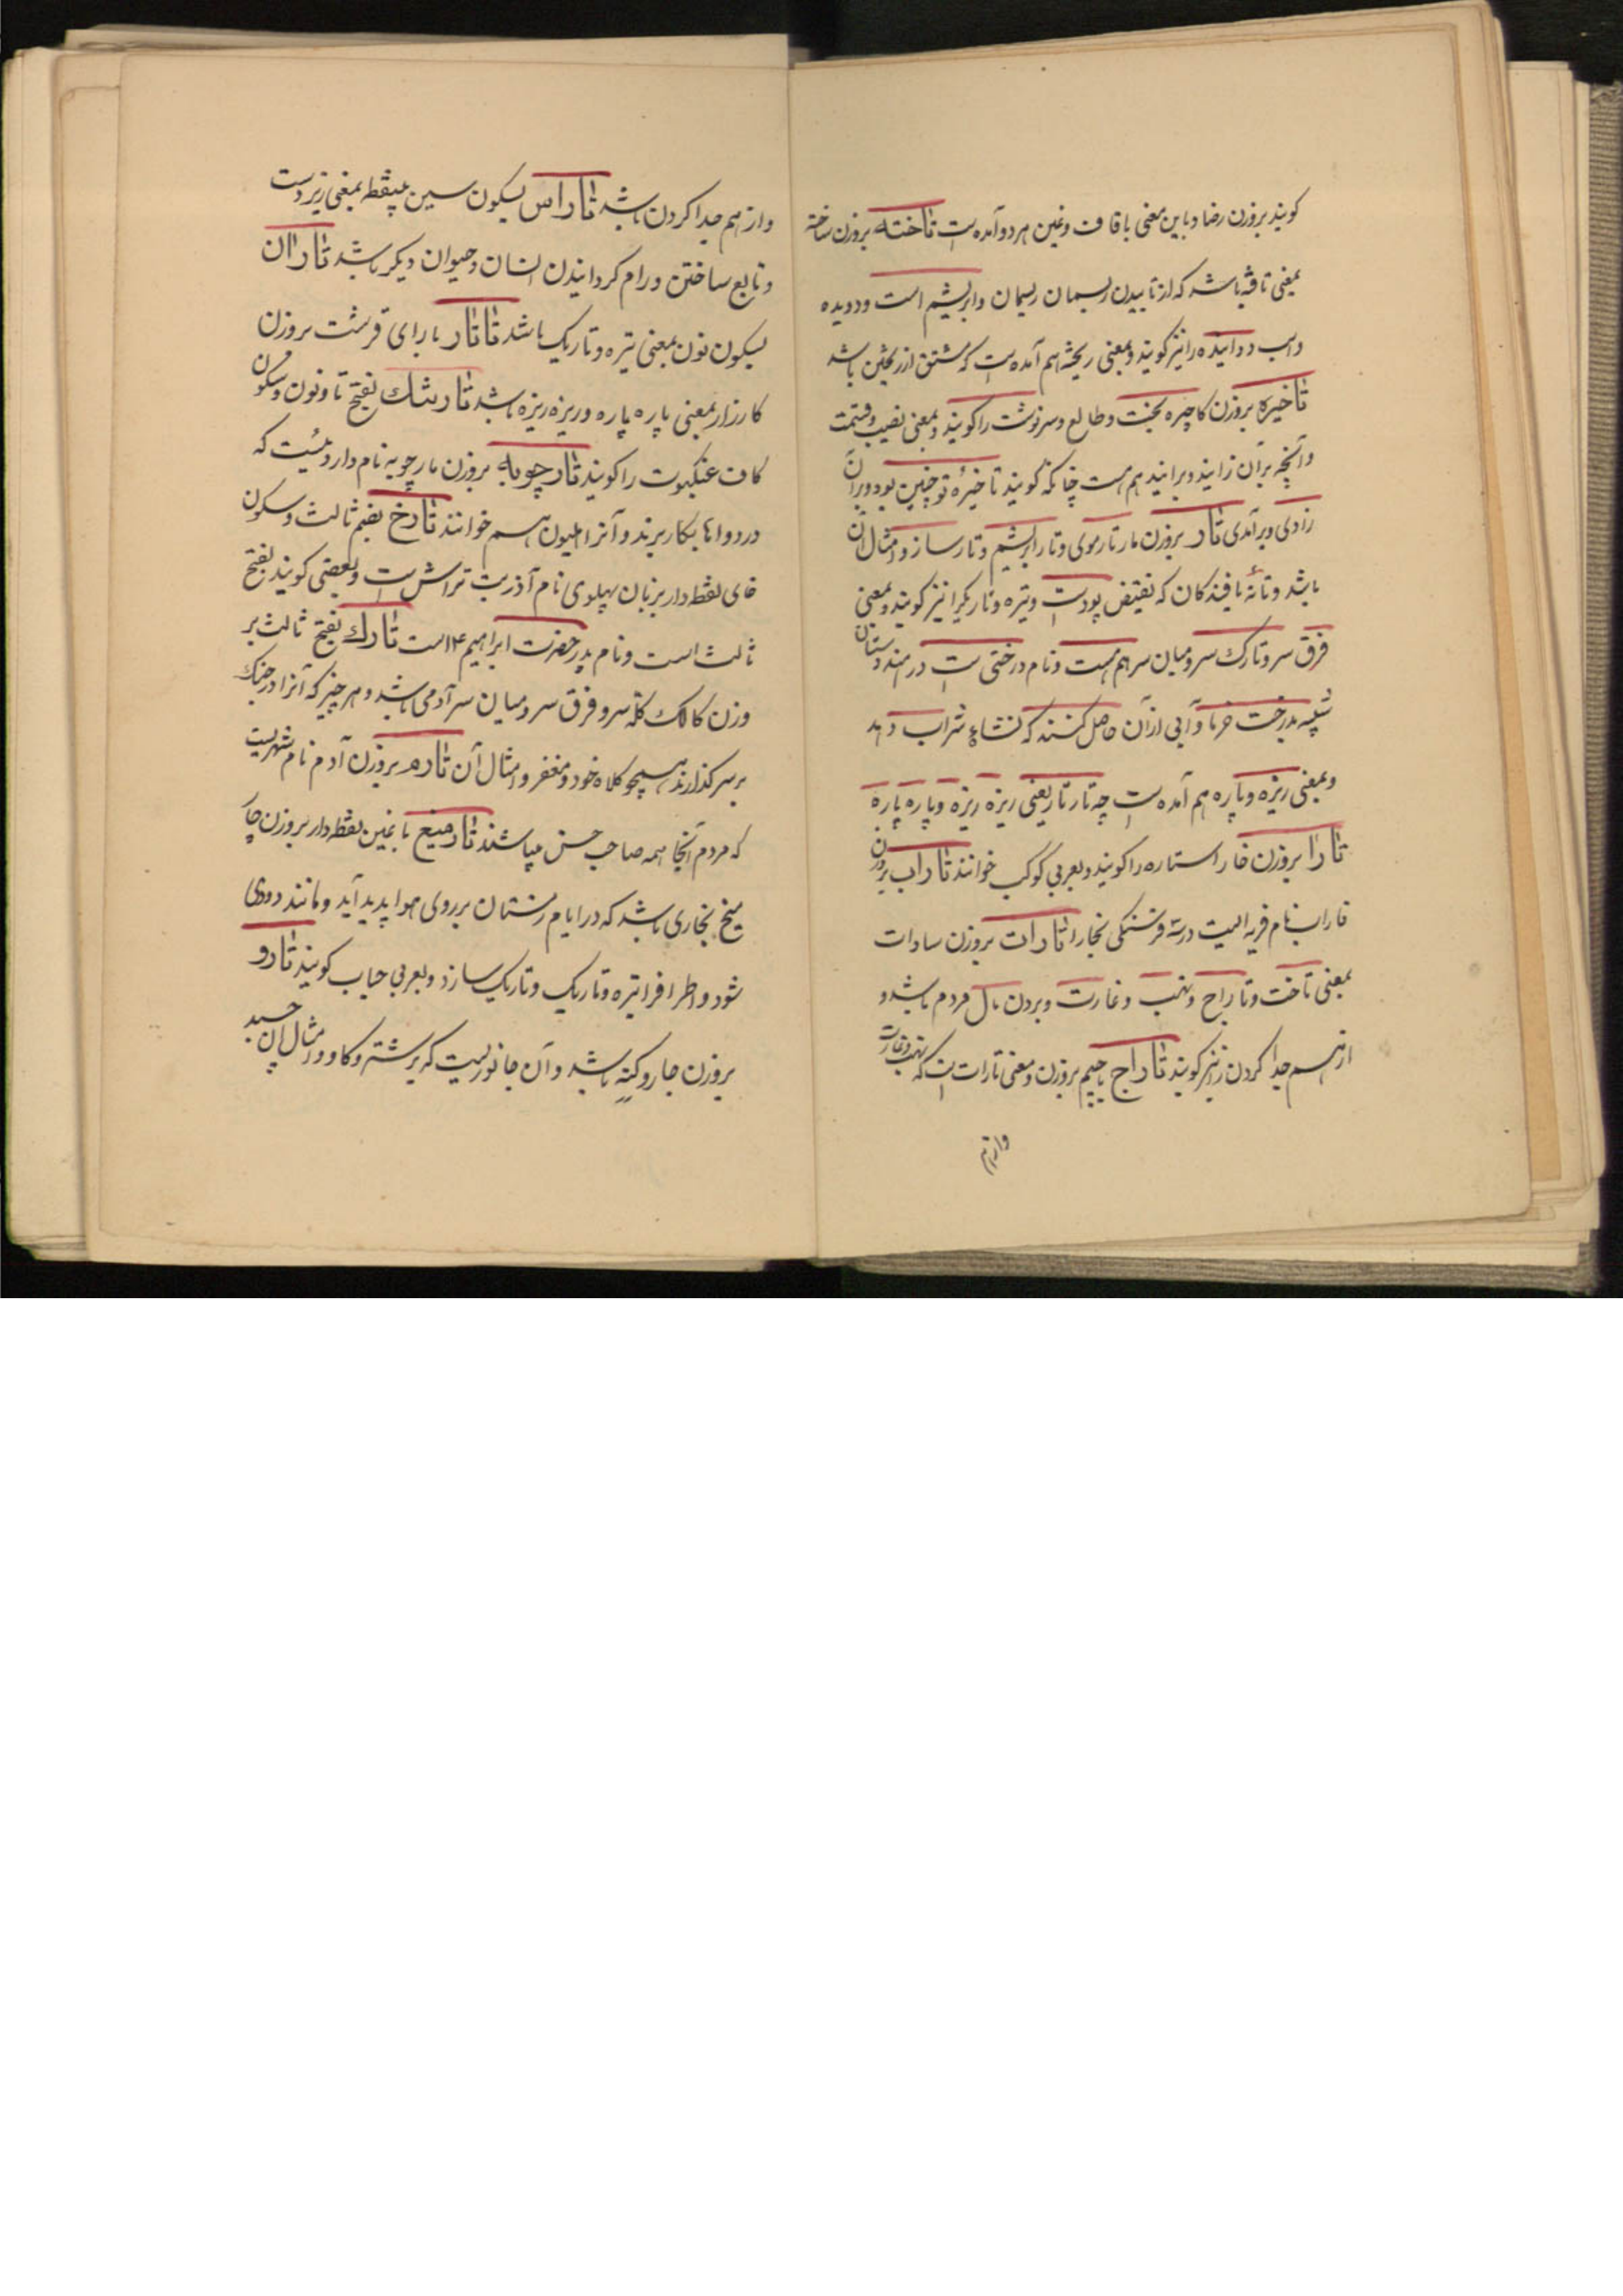 کویند بروزن رضا و باین معنی باقاف و غین هردو آمده است تاخته بروزن ساخته
بمعنی تافته باشد که از تابیدن ریسمان ریسمان و ابریشم است و دویده
واسب دوانیده را نیز کویند و بمعنی ریخته هم آمده است که مشتق از ریختن باشد
تاخیره بروزن کاچیره بخت و طالع و سرنوشت را کویند و بمعنی نصیب و قسمت
و آنچه بر آن زایند و برایند هم هست چنانکه کویند تاخیرهٔ تو چنین بود و بر آن
زادی و بر آمدی تار بروزن مار تار موی و تار ابریشم و تار ساز و امثال آن
باشد و تانهٔ بافندکان که نقیض پود است و تیره و تاریک را نیز کویند و بمعنی
فرق سر و تارک سر و میان سر هم هست و نام درختی است در هندوستان
شبیه بدرخت خرما و آبی از آن حاصل کنند که نشاء شراب دهد
و بمعنی ریزه و پاره هم آمده است چه تار تار یعنی ریزه ریزه و پاره پاره
تارا بروزن خارا ستاره را کویند و بعربی کوکب خوانند تاراب بروزن
فاراب نام قریه ایست در سه فرسنکی بخارا تارات بروزن سادات
بمعنی تاخت و تاراج و نهب و غارت و بردن مال مردم باشد و
از هم جدا کردن را نیز کویند تاراج باجیم بروزن و معنی تارات است که نهب و غارت
و از هم
و از هم جدا کردن باشد تاراس بسکون سین بینقطه بمعنی زیر دست
و تابع ساختن و رام کردانیدن انسان و حیوان دیکر باشد تاران
بسکون نون بمعنی تیره و تاریک باشد تاتار با رای قرشت بروزن
کارزار بمعنی پاره پاره و ریزه ریزه باشد تارتنک بفتح تا و نون و سکون
کاف عنکبوت را کویند تارچوبه بروزن مارچوبه نام داروئیست که
در دواها بکار برند و آنرا هلیون هم خوانند تارخ بضم ثالث و سکون
خای نقطه دار بزبان پهلوی نام آذر بت تراش است و بعضی کویند بفتح
ثالث است و نام پدر حضرت ابراهیم ع است تارک بفتح ثالث بر
وزن کالک کلهٔ سر و فرق سر و میان سر آدمی باشد و هر چیز که آنرا در جنک
بر سر کذارند همچو کلاه خود و مغفر و امثال آن تارم بروزن آدم نام شهریست
که مردم آنجا همه صاحب حسن میباشند تارمیغ با غین نقطه دار بروزن چار
میخ بخاری باشد که در ایام زمستان بر روی هوا پدید آید و مانند دودی
شود و اطراف را تیره و تاریک و تاریک سازد و بعربی ضباب کویند تارو
بروزن جارو کنه باشد و آن جانوریست که بر شتر و کاو و امثال آن چسبد